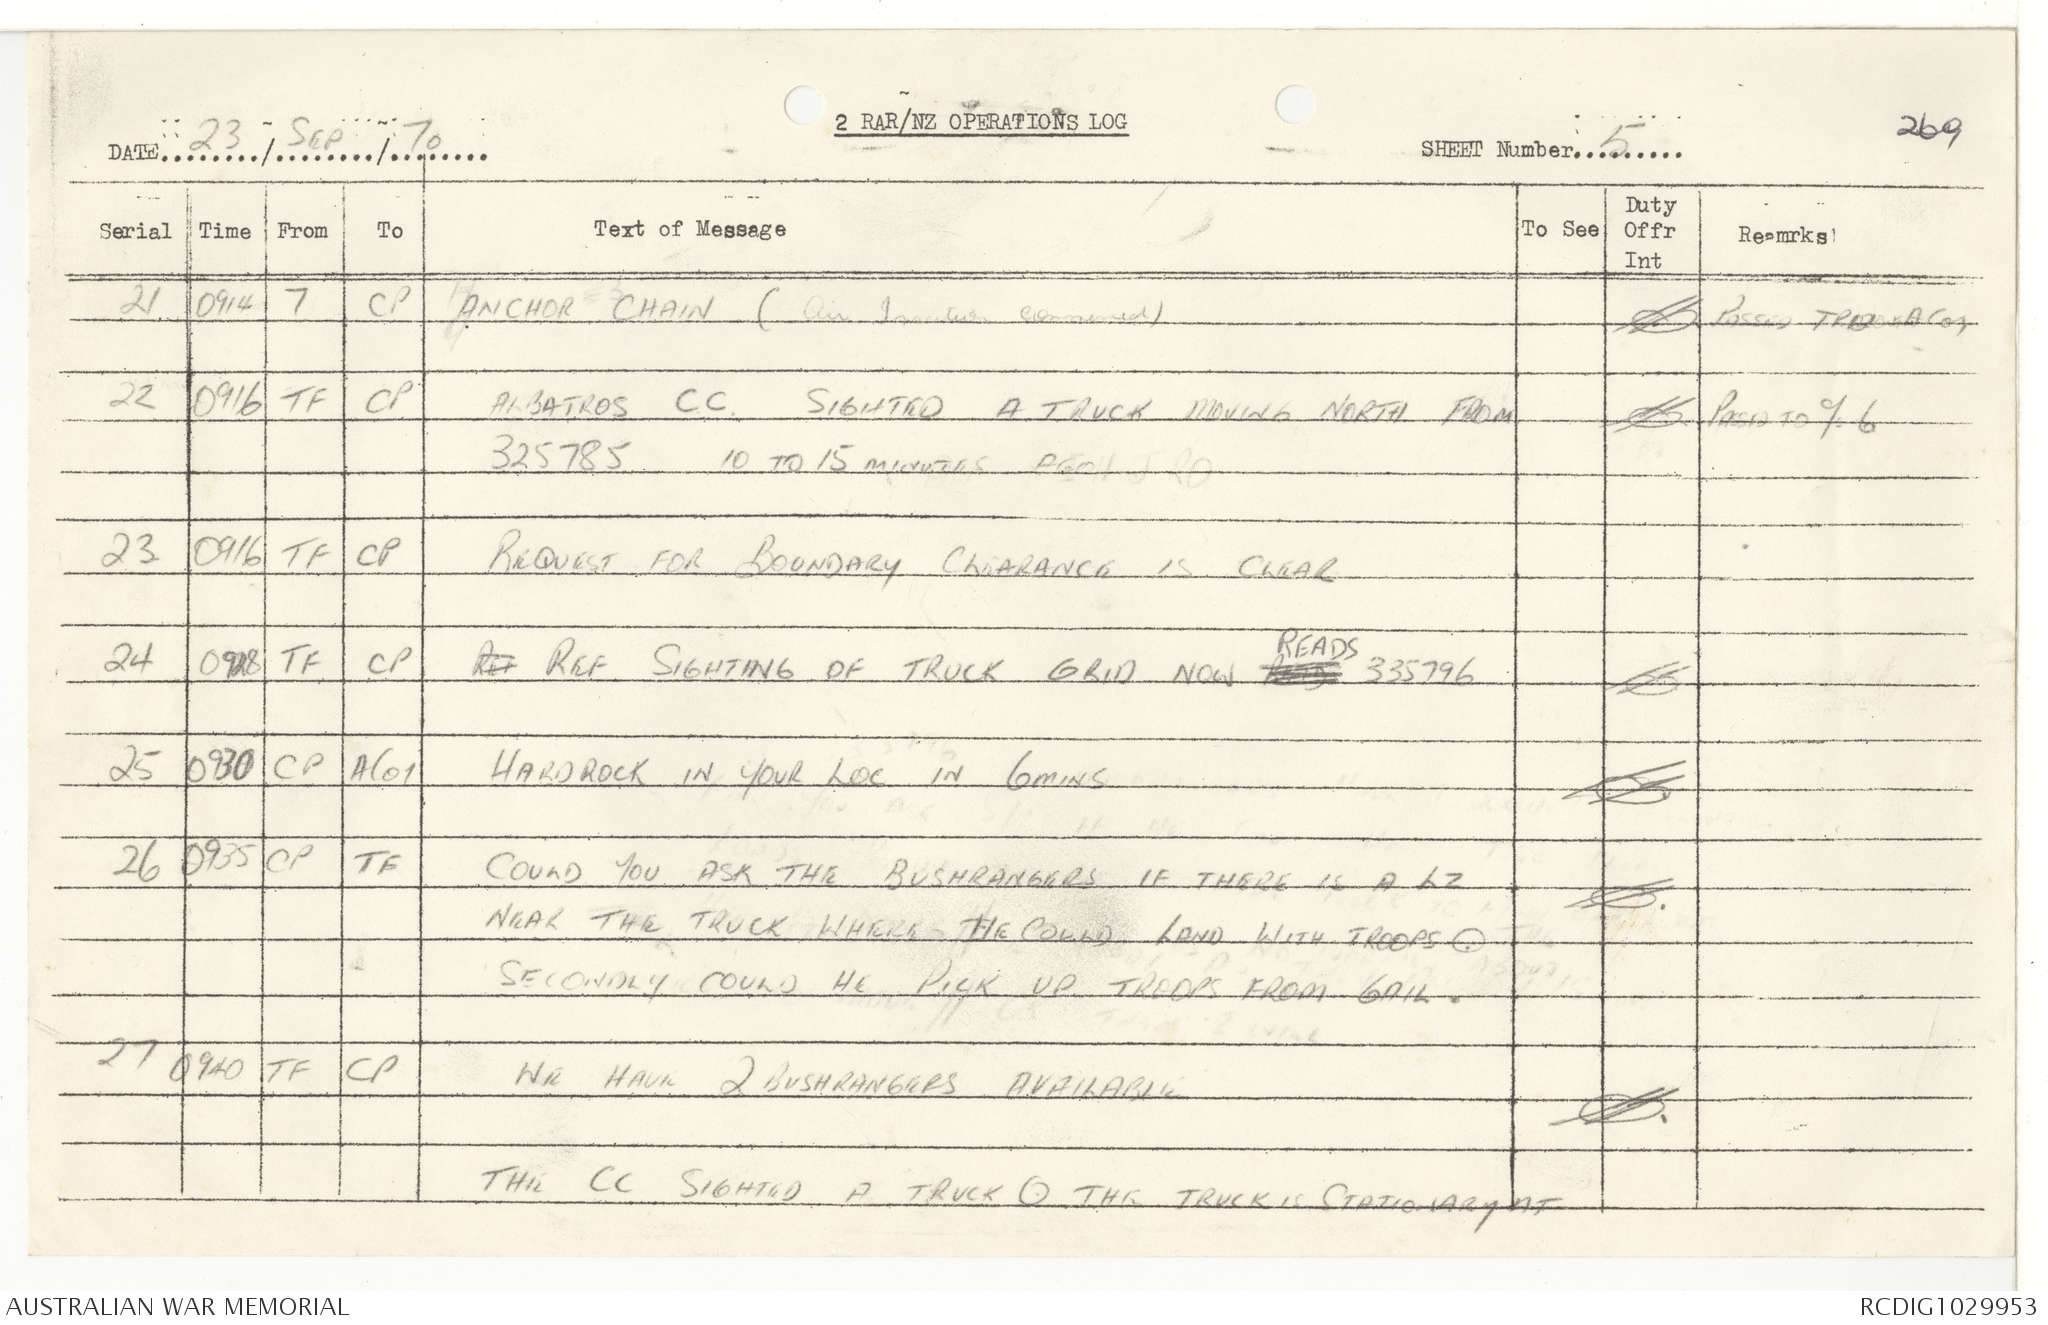 2 RAR/NZ OPERATIONS LOG
269
DATE 23 / SEP / 70
SHEET Number 5
Serial Time From To Text of Message To See Duty Offr Int Remrks
21 0914 7 CP ANCHOR CHAIN (Air commenced) PASSED
22 0916 TF CP ALBATROS CC. SIGHTED A TRUCK MOVING NORTH FROM
325785 10 TO 15 MINUTES
23 0916 TF CP REQUEST FOR BOUNDARY CLEARANCE IS CLEAR
24 0928 TF CP REF REF SIGHTING OF TRUCK GRID NOW READS 335796
25 0930 CP A(09) HARDROCK IN YOUR LOC IN 6 MINS
26 0935 CP TF COULD YOU ASK THE BUSHRANGERS IF THERE IS A LZ
NEAR THE TRUCK WHERE HE COULD LAND WITH TROOPS ⊙
SECONDLY COULD HE PICK UP TROOPS FROM GAIL.
27 0940 TF CP WE HAVE 2 BUSHRANGERS AVAILABLE
THE CC SIGHTED A TRUCK ⊙ THE TRUCK IS STATIONARY AT
AUSTRALIAN WAR MEMORIAL
RCDIG1029953